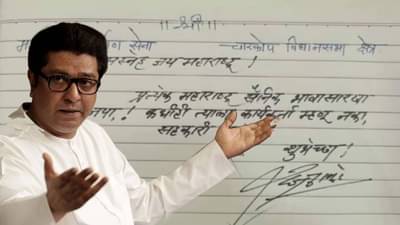 ॥ श्री ॥
सेना — चारकोप विधानसभा क्षेत्र
सस्नेह जय महाराष्ट्र !
प्रत्येक महाराष्ट्र सैनिक भावासारखा
जपा..! कधीही त्याला कार्यकर्ता म्हणू नका,
सहकारी
शुभेच्छा !